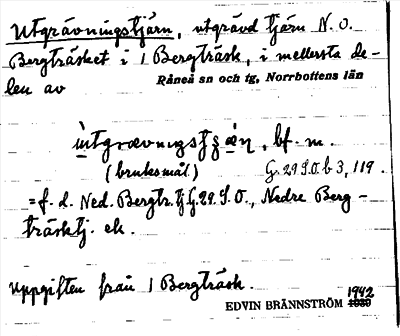 Utgrävningstjärn, utgrävd tjärn N.O.
Bergträsket i 1 Bergträsk, i mellersta de-
len av Råneå sn och tg, Norrbottens län
ùtgrævnıŋstʒæ̀ṇ, bf. m.
(bruksmål) G. 29 S.O. b 3, 119.
= f. d. Ned. Bergtr. tj G. 29. S.O., Nedre Berg-
träsktj. ek.
Uppgiften från 1 Bergträsk.
EDVIN BRÄNNSTRÖM 1942